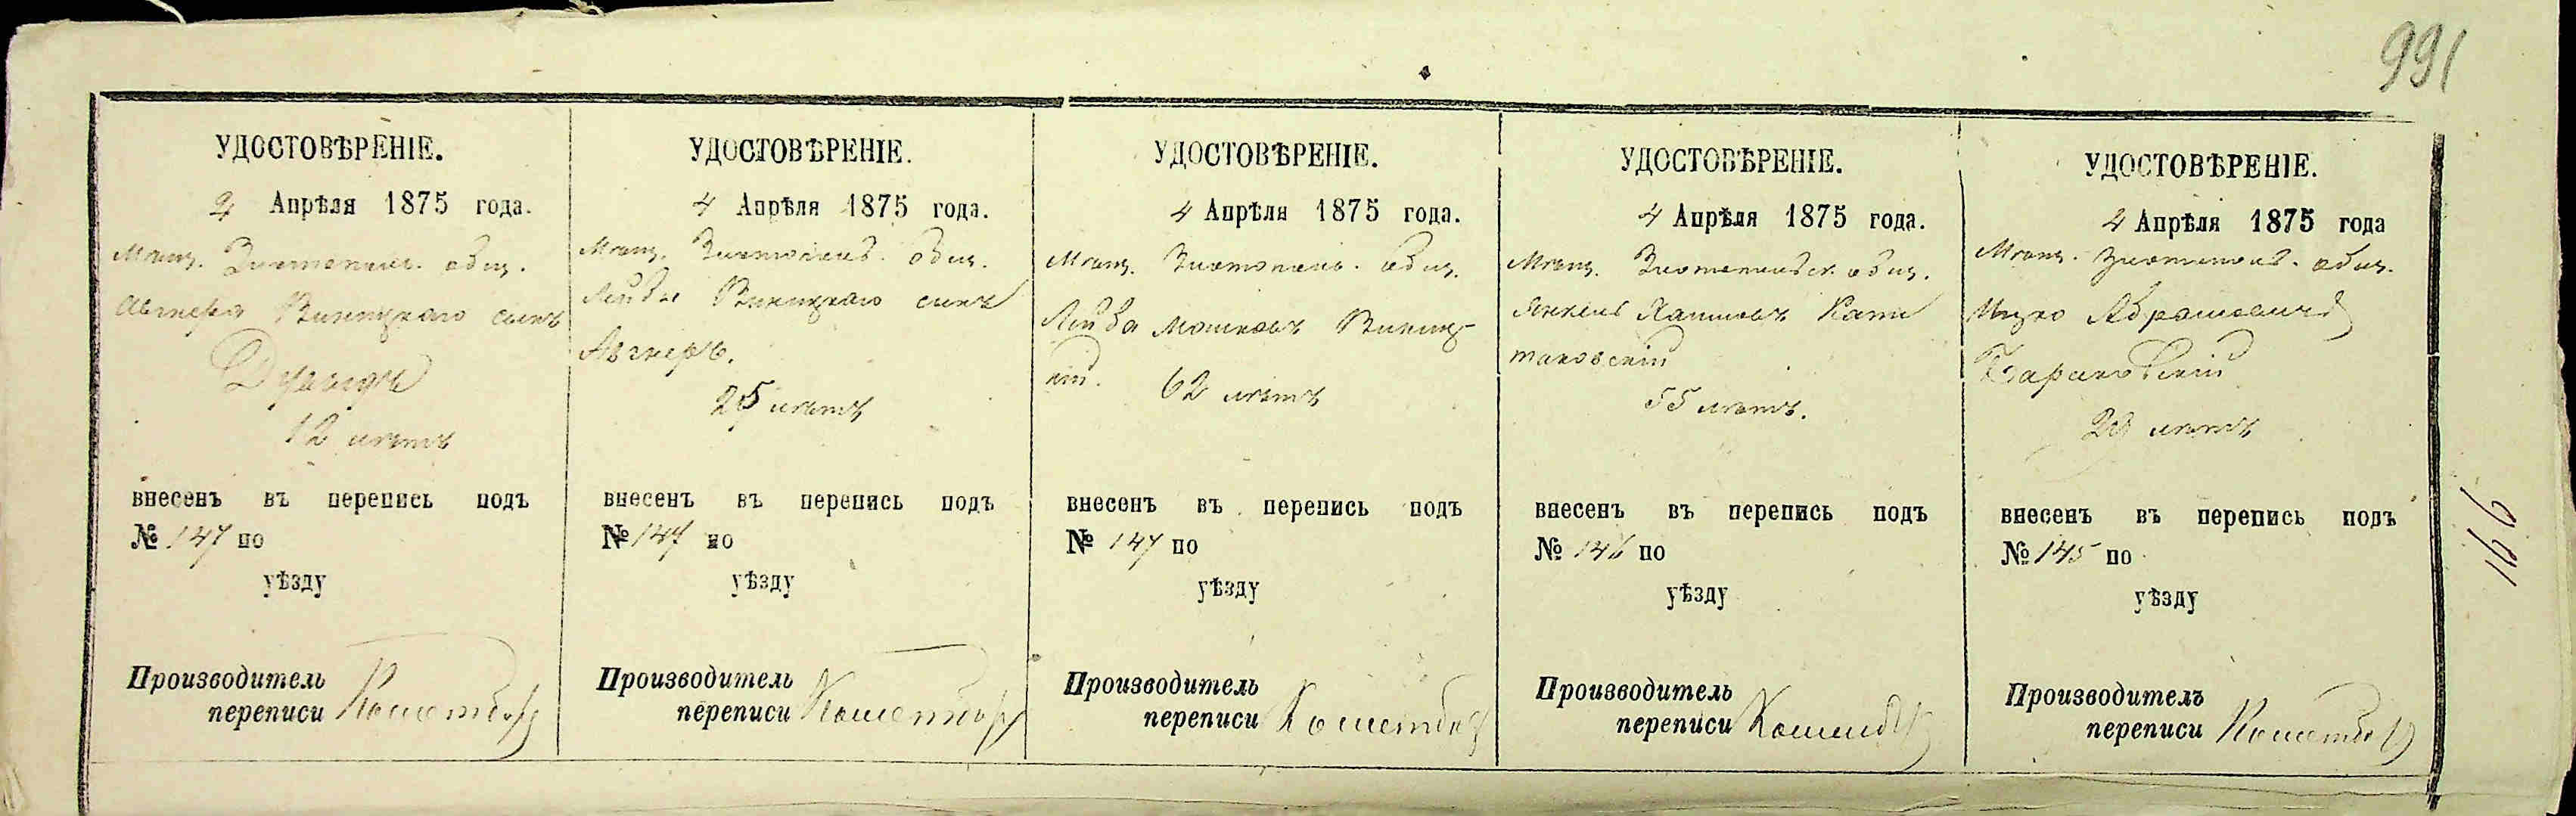 991
УДОСТОВѢРЕНІЕ.
4 Апрѣля 1875 года.
Мѣщ. общ.
Авгнера Виницкаго сынъ
12 лѣтъ
внесенъ въ перепись подъ
№ 147 по
уѣзду
Производитель
переписи
УДОСТОВѢРЕНІЕ.
4 Апрѣля 1875 года.
Мѣщ. общ.
Лейбы Виницкаго сынъ
Авгнеръ.
25 лѣтъ
внесенъ въ перепись подъ
№ 147 по
уѣзду
Производитель
переписи
УДОСТОВѢРЕНІЕ.
4 Апрѣля 1875 года.
Мѣщ. общ.
Лейба Мошковъ Виниц-
кій.
62 лѣтъ
внесенъ въ перепись подъ
№ 147 по
уѣзду
Производитель
переписи
УДОСТОВѢРЕНІЕ.
4 Апрѣля 1875 года.
Мѣщ. общ.
Янкель Хаимовъ
55 лѣтъ.
внесенъ въ перепись подъ
№ 146 по
уѣзду
Производитель
переписи
УДОСТОВѢРЕНІЕ.
4 Апрѣля 1875 года
Мѣщ. общ.
Ицко Абрамовичъ
29 лѣтъ
внесенъ въ перепись подъ
№ 145 по
уѣзду
Производитель
переписи
991